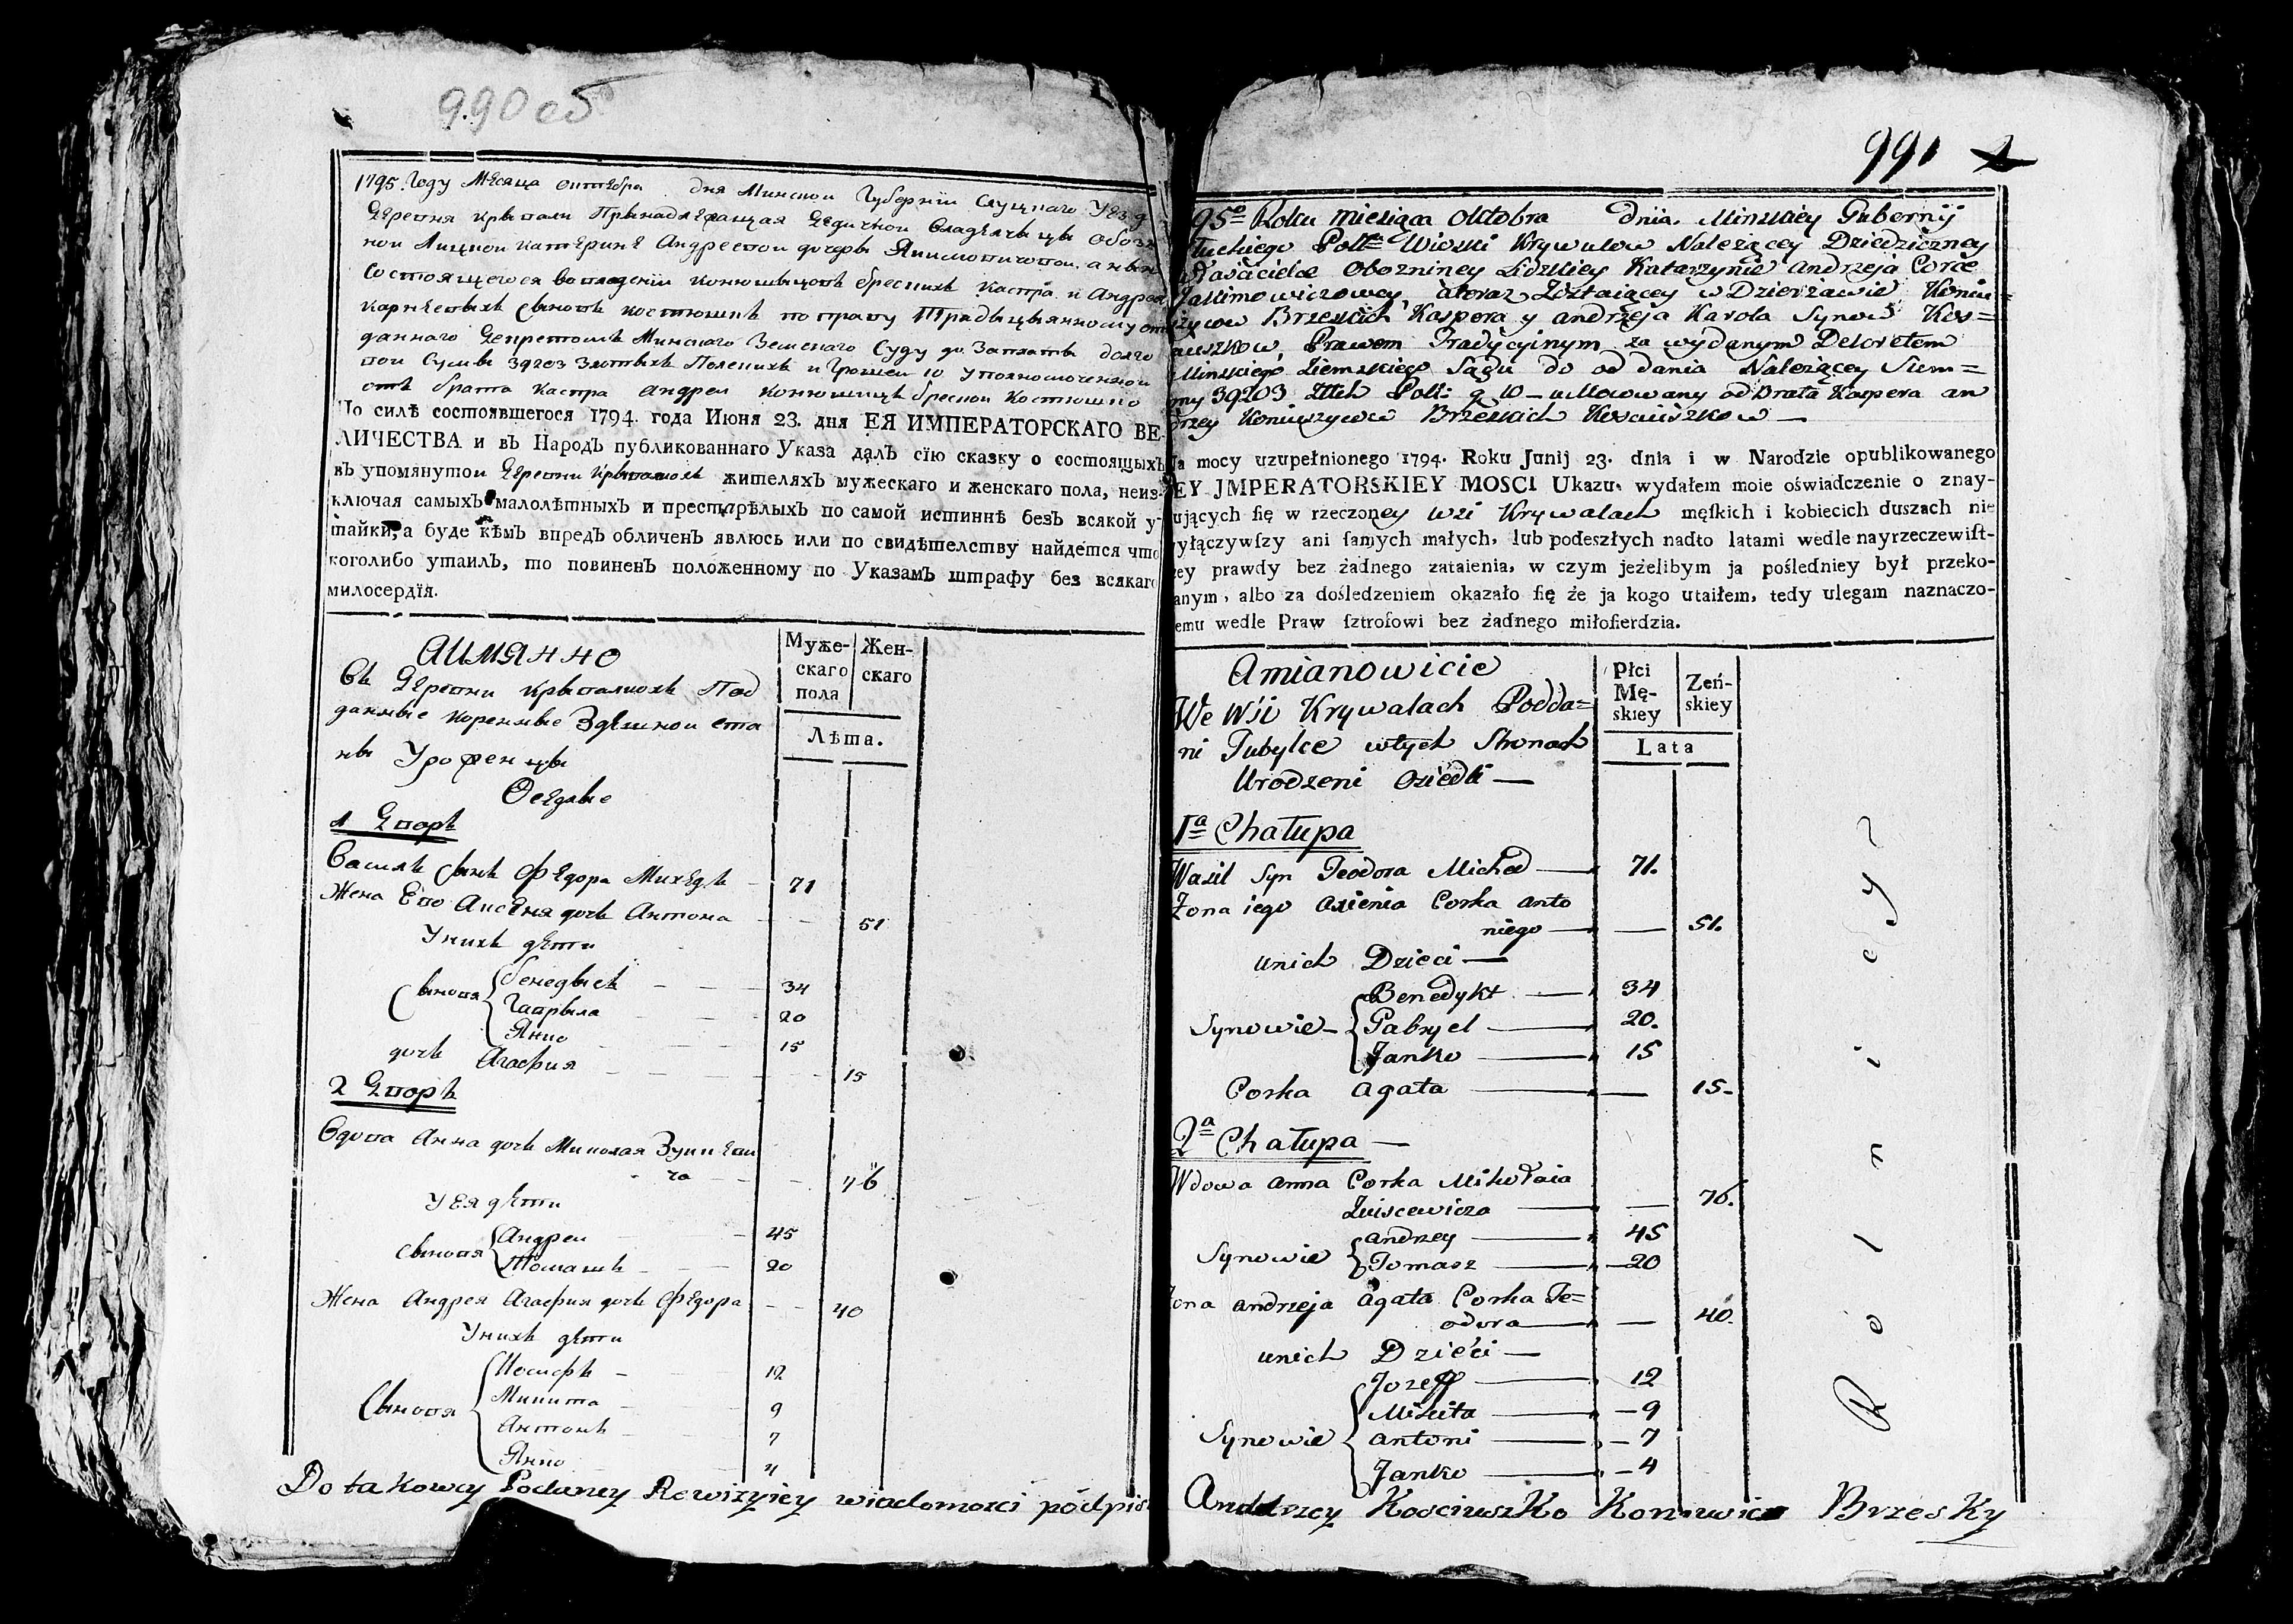 990 об
1795. Году Месяца октебра дня Минской Губернии Слуцкаго Уезд
деревня Крывали Принадлежащая дедичной владелчыцы обозн
ной Лидзкой Катерине Андреевой дочеры Якимовичовой, а ныне
состоящегося во владении конюшыцовъ брескихъ Каспра и Андрея
Каролевыхъ сыновъ Костюшкъ по праву Традыцыянному от
даннаго Декретомъ Минскаго Земскаго Суду до Заплаты долго
вой Сумы 39203 Злотыхъ Полскихъ и Грошей 10 Уполномоченной
отъ брата Каспра Андрей конюшицъ брескои Костюшко
По силѣ состоявшегося 1794. года Июня 23. дня ЕЯ ИМПЕРАТОРСКАГО ВЕ-
ЛИЧЕСТВА и въ Народъ публикованнаго Указа далъ сїю сказку о состоящыхъ
въ упомянутой деревни Крывалюхъ жителяхъ мужескаго и женскаго пола, неиз-
ключая самыхъ малолѣтныхъ и престарѣлыхъ по самой истиннѣ безъ всякой у-
тайки, а буде кѣмъ впредъ обличенъ явлюсь или по свидѣтелству найдется что
коголибо утаилъ, то повиненъ положенному по Указамъ штрафу без всякаго
милосердїя.
Муже-
скаго
пола
Жен-
скаго
Лѣта.
Аимянно
Въ деревни Крывалюхъ Под
данные коренные Здешной ста
ны Уроженцы
Оседлые
1 Дворъ
Василь сынъ Федора Михедъ 71
Жена Его Аксеня дочь Антона 51
У нихъ дети
Сыновя
Бенедыктъ 34
Гаврыла 20
Янко 15
дочь Агафия 15
2 Дворъ
Вдова Анна дочь Миколая Зуикеви
ча 76
У Ея дети
Сыновя
Андрей 45
Томашъ 20
Жена Андрея Агафия дочь Федора 40
У нихъ дети
Сыновя
Иосифъ 12
Микита 9
Антонъ 7
Янко 4
Do takowey Podaney Rewizyiey wiadomosci podpis
991
95º Roku miesiąca Oktobra Dnia Minskiey Gubernij
łuckiego Pottu Wioski Krywulow Należącey Dziedziczney
Własćicielce Oboźniney Lidzkiey Katarzynie Andrzeja Corce
Jakimowiczowey, a teraz Zostaiącey w Dzierżawie Koniu=
szycow Brzeskich Kaspera y Andrzeja Karola Synow Kos=
ciuszkow, Prawem Tradycyinym za wydanym Dekretem
Minskiego Ziemskiego Sądu do oddania Należącey Sum=
my 39203 Złłch Polł: g 10 – umocowany od Brata Kaspera An
drzey Koniuszycow Brzeskich Kosciuszkow —
Na mocy uzupełnionego 1794. Roku Junij 23. dnia i w Narodzie opublikowanego
EY JMPERATORSKIEY MOSCI Ukazu, wydałem moie oświadczenie o znay-
ujących się w rzeczoney Wsi Krywalach męſkich i kobiecich duszach nie
yłączywſzy ani ſamych małych, lub podeszłych nadto latami wedle nayrzeczewiſt-
zey prawdy bez żadnego zataienia, w czym jeżelibym ja pośledniey był przeko-
anym, albo za dośledzeniem okazało się że ja kogo utaiłem, tedy ulegam naznaczo-
emu wedle Praw ſztrofowi bez żadnego miłoſierdzia.
Płci
Mę-
skiey
Zeń-
skiey
Lata
Amianowicie
We Wsi Krywalach Podda=
ni Tubylce w tych Stronach
Urodzeni Osiedli —
1ª Chałupa
Wasil Syn Teodora Miched 71.
Zona iego Axienia Corka Anto
niego 51.
u nich Dzieci —
Synowie
Benedykt 34
Gabryel 20.
Janko 15
Corka Agata 15.
2ª Chałupa —
Wdowa Anna Corka Mikołaia
Zuiscewicza 76.
Synowie
Andrzey 45
Tomasz 20
Zona Andrzeja Agata Corka Te=
odora 40.
u nich Dzieci —
Synowie
Jozeff 12
Mikita 9
Antoni 7
Janko 4
Rolniey
Anddrzey KosciuszKo Koniuwicz BrzesKy